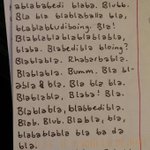 ablablabedi blaba. Blubb.
Bla bla blablabla bla,
blablabludiboing. Bla!
Blablablablablablabla,
blaba. Blabedibla bloing?
Blablabla. Rhabarbabla.
Blablabla. Bumm. Bla bl-
abla & bla. Bla bla bla.
Blablabla, Blaba! Bla.
Blablabla, blabbedibla.
Blab. Blub. Blabla, bla,
blabablabla bla ba da
bla.